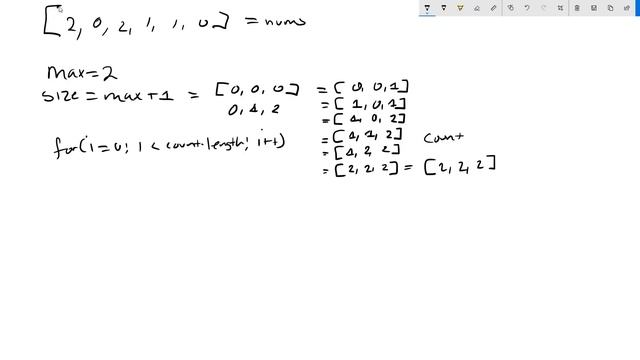 [2, 0, 2, 1, 1, 0] = nums
max = 2
size = max + 1 = [0, 0, 0] = [0, 0, 1]
0, 1, 2 = [1, 0, 1]
= [1, 0, 2]
for(i = 0; i < count.length; i++) = [1, 1, 2] count
= [1, 2, 2]
= [2, 2, 2] = [2, 2, 2]